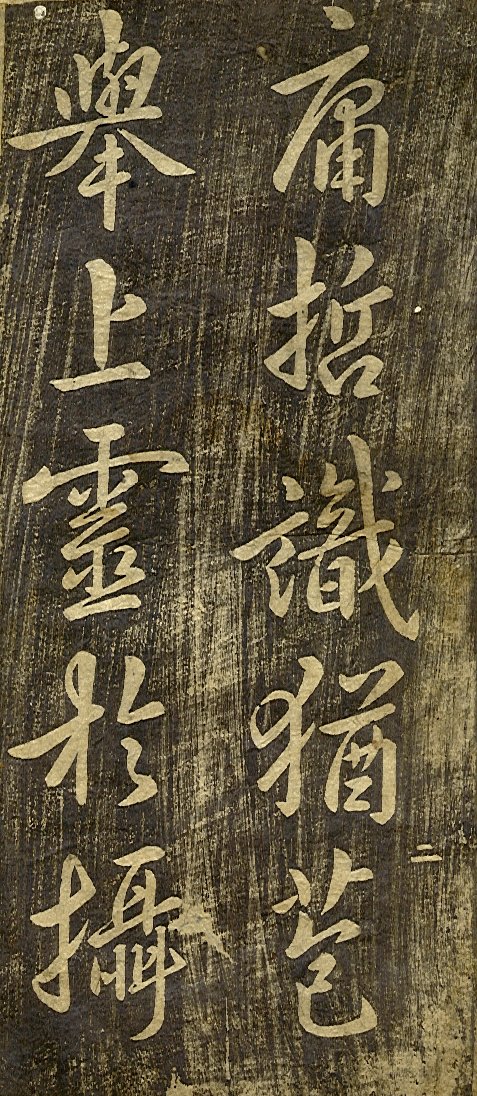 二
庸哲識猶苞
舉上靈於攝